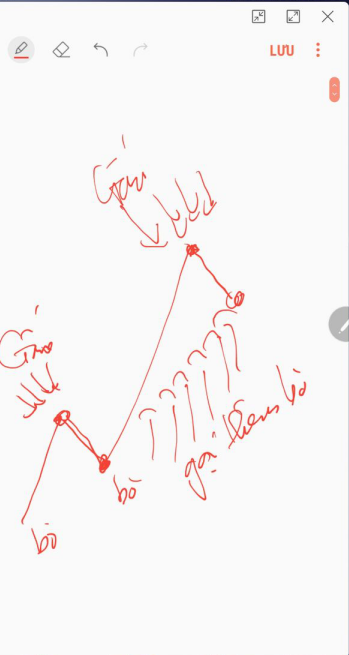 LƯU
Gấu
Gấu
bò
bò
gọi thêm bò